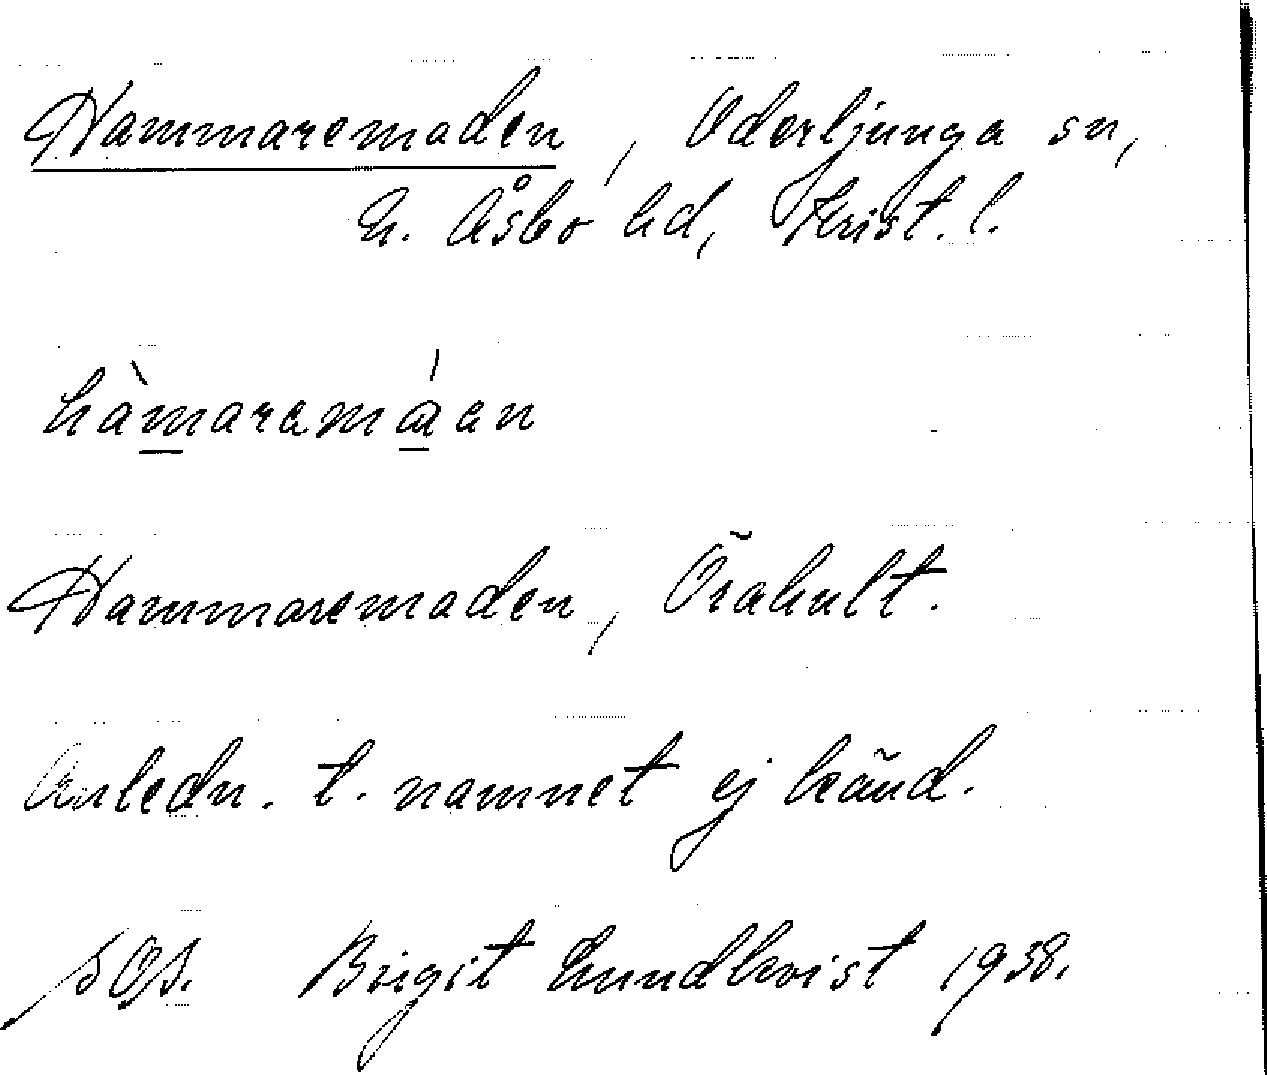 Hammaremaden, Oderljunga sn,
N. Åsbo hd, Krist. l.
hàmaremáen
Hammaremaden, Örahult.
Anledn. t. namnet ej känd.
Birgit Lundkvist 1938.